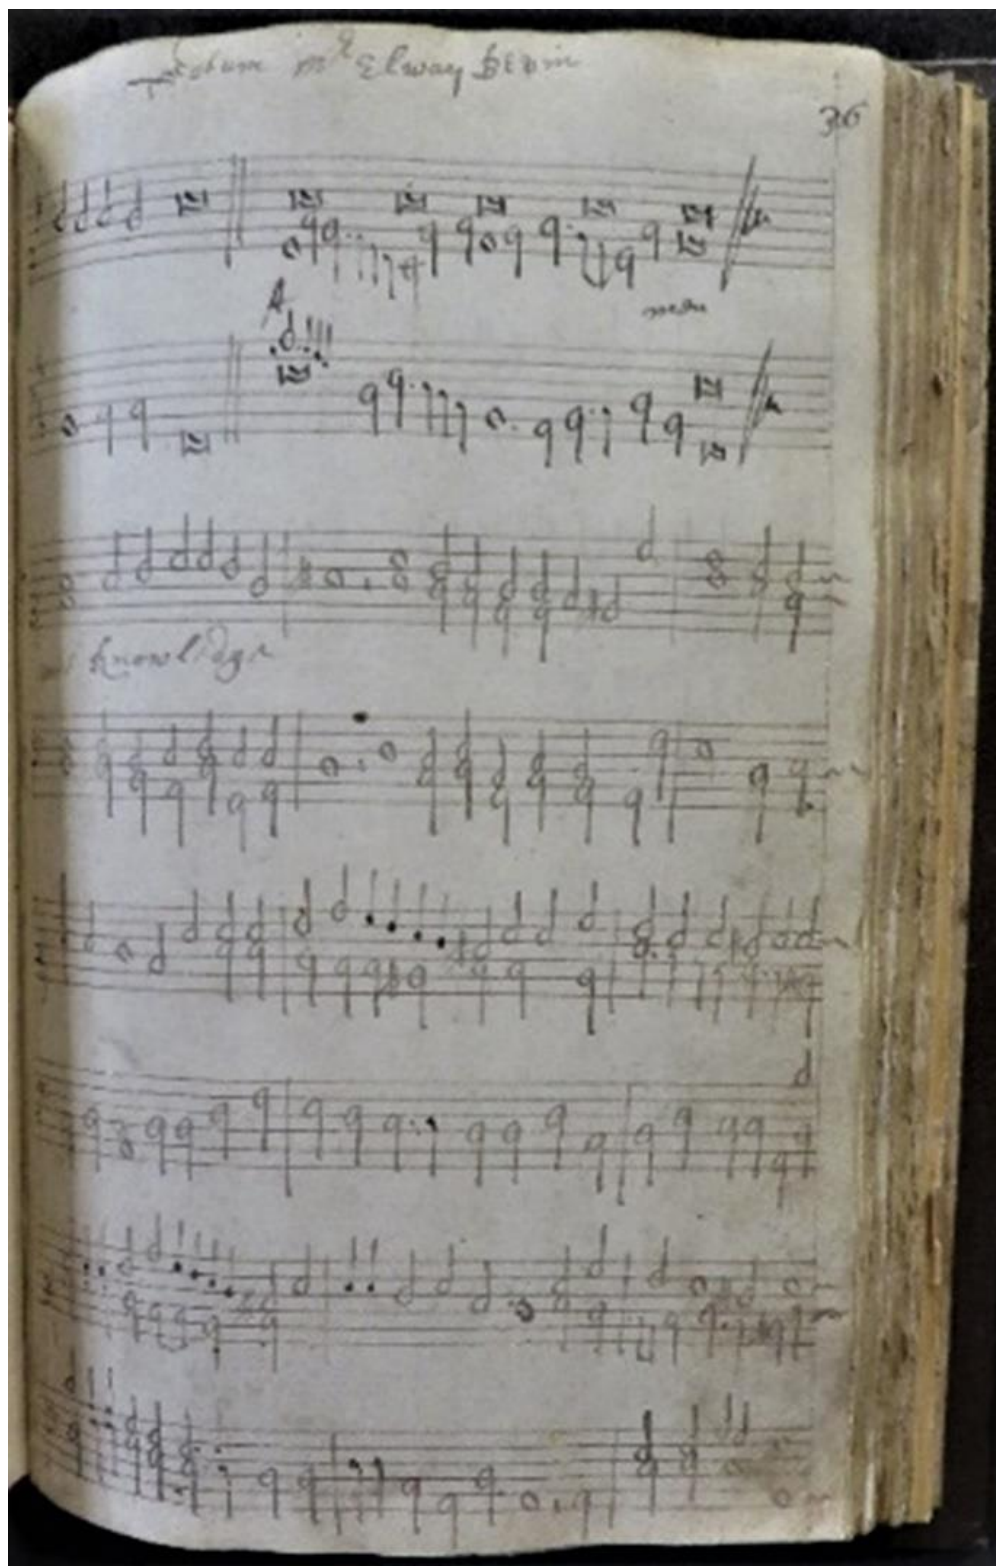 Tedeum mr Elway Bevin
36
A
men
knowledge